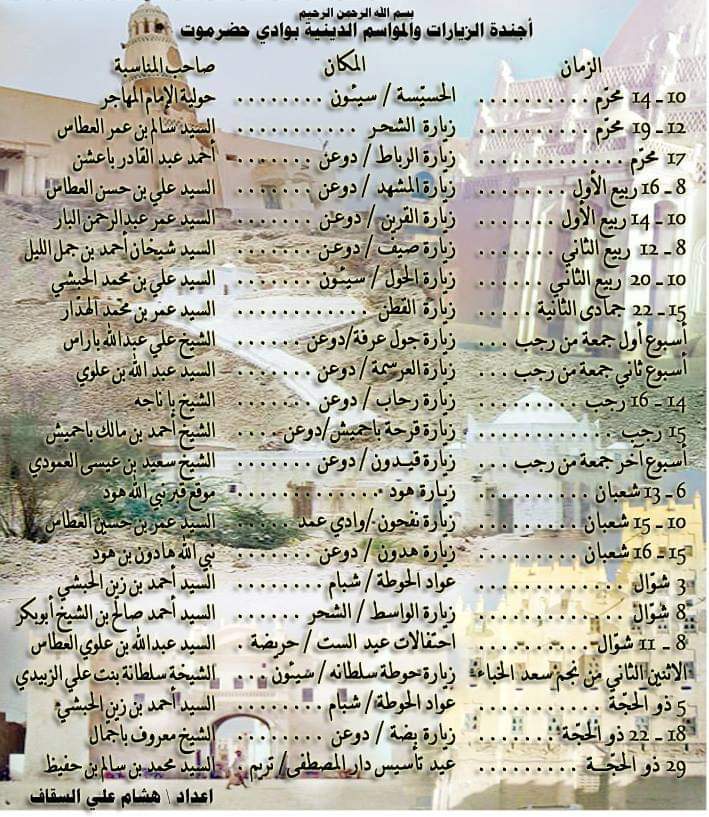 بسم الله الرحمن الرحيم
أجندة الزيارات والمواسم الدينية بوادي حضرموت
الزمان المكان صاحب المناسبة
10 - 14 محرّم . . . . . . . . . . الحسيّسة / سيئون . . . . . . . . . حولية الإمام المهاجر
12 - 19 محرّم . . . . . . . . . . زيارة الشحر . . . . . . . . . . . السيد سالم بن عمر العطاس
17 محرّم . . . . . . . . . . زيارة الرباط / دوعن . . . . . . . . أحمد عبد القادر باعشن
8 - 16 ربيع الأول . . . . . . . . زيارة المشهد / دوعن . . . . . . . السيد علي بن حسن العطاس
10 - 14 ربيع الأول . . . . . . . زيارة القرين / دوعن . . . . . . . السيد عمر عبدالرحمن البار
8 - 12 ربيع الثاني . . . . . . . زيارة صيف / دوعن . . . . . . . السيد شيخان أحمد بن جمل الليل
10 - 20 ربيع الثاني . . . . . . زيارة الحول / سيئون . . . . . . . السيد علي بن محمد الحبشي
15 - 22 جمادى الثانية . . . . . زيارة القطن . . . . . . . . . . . . السيد عمر بن محمّد الهدّار
أسبوع أول جمعة من رجب . . . زيارة جول عرفة/دوعن . . . . . . الشيخ علي عبدالله باراس
أسبوع ثاني جمعة من رجب . . . زيارة العرسمة / دوعن . . . . . . . السيد عبد الله بن علوي
14 - 16 رجب . . . . . . . . . زيارة رحاب / دوعن . . . . . . . . الشيخ با ناجه
15 رجب . . . . . . . . . . زيارة قرحة باحميش/دوعن . . . . الشيخ أحمد بن مالك باحميش
أسبوع آخر جمعة من رجب . . . زيارة قيدون / دوعن . . . . . . . الشيخ سعيد بن عيسى العمودي
6 - 13 شعبان . . . . . . . . . زيارة هود . . . . . . . . . . . . . موقع قبر نبي الله هود
10 - 15 شعبان . . . . . . . . زيارة نفحون /وادي عمد . . . . . السيد عمر بن حسين العطاس
15 - 16 شعبان . . . . . . . . زيارة هدون / دوعن . . . . . . . نبي الله هادون بن هود
3 شوّال . . . . . . . . . . عواد الحوطة / شبام . . . . . . . . السيد أحمد بن زين الحبشي
8 شوّال . . . . . . . . . . زيارة الواسط / الشحر . . . . . . . السيد أحمد صالح بن الشيخ أبوبكر
8 - 11 شوّال . . . . . . . . . احتفالات عيد الست / حريضة . السيد عبدالله بن علوي العطاس
الاثنين الثاني من نجم سعد الخباء زيارة حوطة سلطانه / سيئون . . . الشيخة سلطانة بنت علي الزبيدي
5 ذو الحجّة . . . . . . . . . عواد الحوطة/ شبام . . . . . . . . السيد أحمد بن زين الحبشي
18 - 22 ذو الحجّة . . . . . . زيارة بضة / دوعن . . . . . . . . الشيخ معروف باجمال
29 ذو الحجّـة . . . . . . . . . عيد تأسيس دار المصطفى/ تريم . السيد محمد بن سالم بن حفيظ
اعداد \ هشام علي السقاف